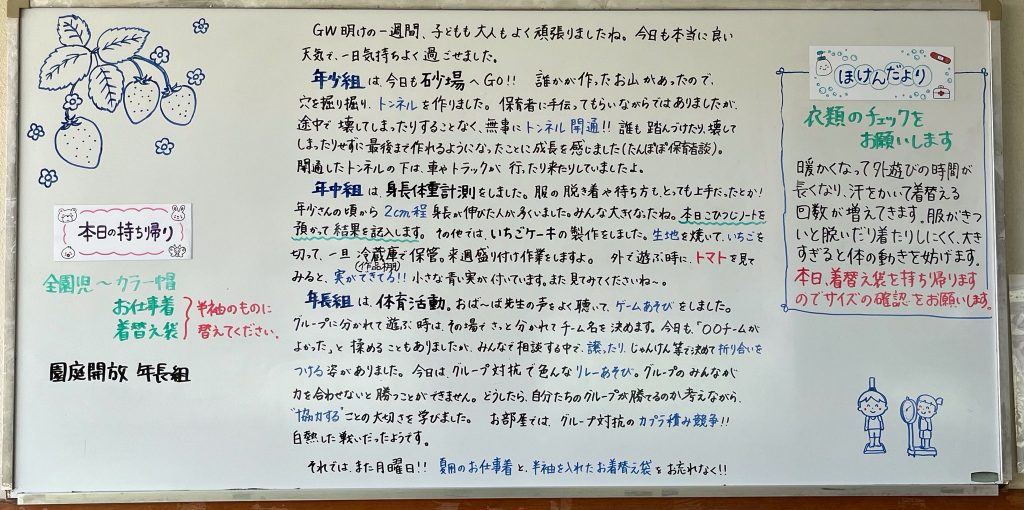 GW明けの一週間、子どもも大人もよく頑張りましたね。今日も本当に良い
天気で、一日気持ちよく過ごせました。
年少組は、今日も砂場へGO!! 誰かが作ったお山があったので、
穴を掘り掘り、トンネルを作りました。保育者に手伝ってもらいながらではありましたが、
途中で壊してしまったりすることなく、無事にトンネル開通!! 誰も踏んづけたり、壊して
しまったりせずに最後まで作れるようになったことに成長を感じました(たんぽぽ保育者談)。
開通したトンネルの下は、車やトラックが行ったり来たりしていましたよ。
年中組は、身長体重計測をしました。服の脱ぎ着や待ち方も、とっても上手だったとか!
年少さんの頃から2cm程身長が伸びた人が多くいました。みんな大きくなったね。本日こひつじノートを
預かって結果を記入します。その他では、いちごケーキの製作をしました。生地を焼いて、いちごを
切って、一旦冷蔵庫で保管。来週盛り付け作業をしますよ。外で遊ぶ時に、トマトを見て
(作品棚)
みると、実ができてる!! 小さな青い実が付いています。また見てみてくださいね~。
年長組は、体育活動。おば~ば先生の声をよく聴いて、ゲームあそびをしました。
グループに分かれて遊ぶ時は、その場でさっと分かれてチーム名を決めます。今日も“〇〇チームが
よかった„と揉めることもありましたが、みんなで相談する中で、譲ったり、じゃんけん等で決めて折り合いを
つける姿がありました。今日は、グループ対抗で色んなリレーあそび。グループのみんなが
力を合わせないと勝つことができません。どうしたら、自分たちのグループが勝てるのか考えながら、
“協力する„ことの大切さを学びました。お部屋では、グループ対抗のカプラ積み競争!!
白熱した戦いだったようです。
それでは、また月曜日!! 夏用のお仕事着と、半袖を入れたお着替え袋をお忘れなく!!
本日の持ち帰り
全園児~カラー帽
お仕事着
着替え袋
半袖のものに
替えてください。
園庭開放 年長組
ほけんだより
衣類のチェックを
お願いします
暖かくなって外遊びの時間が
長くなり、汗をかいて着替える
回数が増えてきます。服がきつ
いと脱いだり着たりしにくく、大き
すぎると体の動きを妨げます。
本日、着替え袋を持ち帰ります
のでサイズの確認をお願いします。